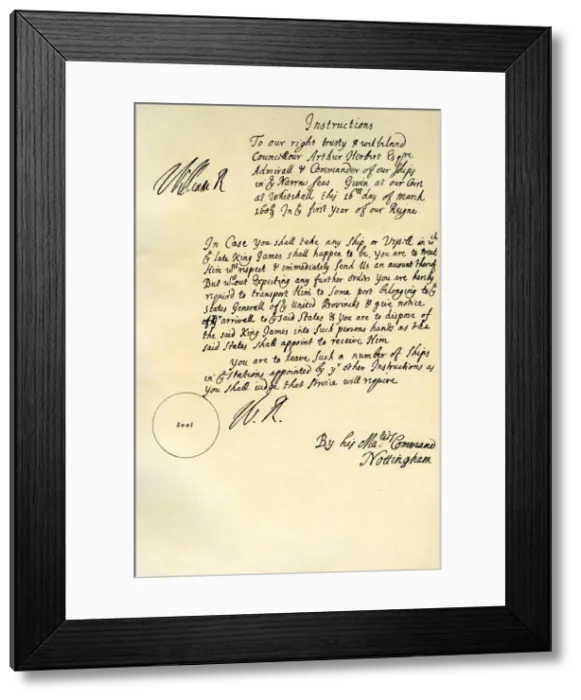 Instructions
To our right trusty & welbelovd
Councellour Arthur Herbert Esqre
Admirall & Commander of our Ships
in ye Narrow Seas Given at our Court
at Whitehall this 16th day of march
168 8/9 In ye first year of our Reigne
William R
In Case you shall take any Ship or Vessell in wch
ye late King James shall happen to be, you are to treat
Him wth respect & immediately send Us an account thereof
But wthout Expecting any further orders you are hereby
requird to transport Him to some port belonging to ye
States Generall of ye United Provinces & give notice
of yr arrivall to ye said States & you are to dispose of
the said King James into such persons hands as the
said States shall appoint to receive Him
You are to leave such a number of Ships
in ye Stations appointed by yr other Instructions as
you shall judge that service will require
Seal
W. R.
By his Maties Command
Nottingham